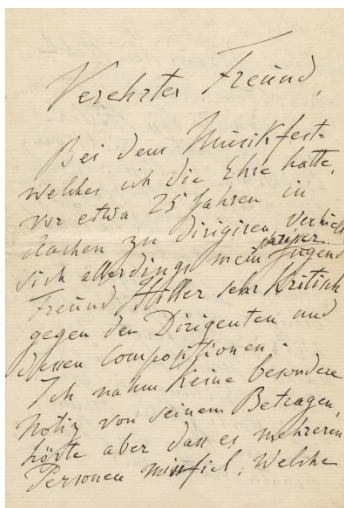 Verehrter Freund,
Bei dem Musikfest
welches ich die Ehre hatte,
vor etwa 25 Jahren in
Aachen zu dirigiren verhielt
sich allerdings mein Pariser Jugend
Freund, Hiller sehr Kritisch
gegen den Dirigenten und
dessen Compositionen.
Ich nahm Keine besondere
Notiz von seinem Betragen,
hörte aber dass es mehreren
Personen missfiel, Welche